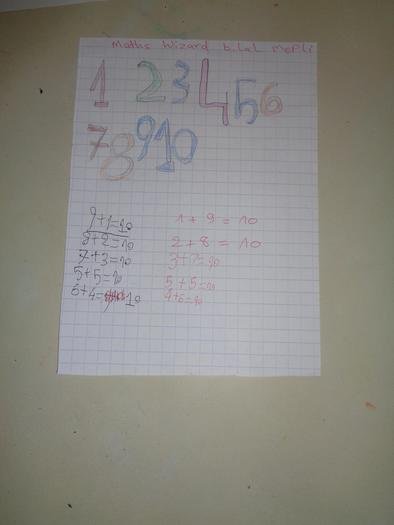 Maths Wizard bilal mepli
1 2 3 4 5 6
7 8 9 10
9+1=10 1 + 9 = 10
8+2=10 2 + 8 = 10
7+3=10 3+7=10
5+5=10 5+5=10
6+4=10 4+6=10